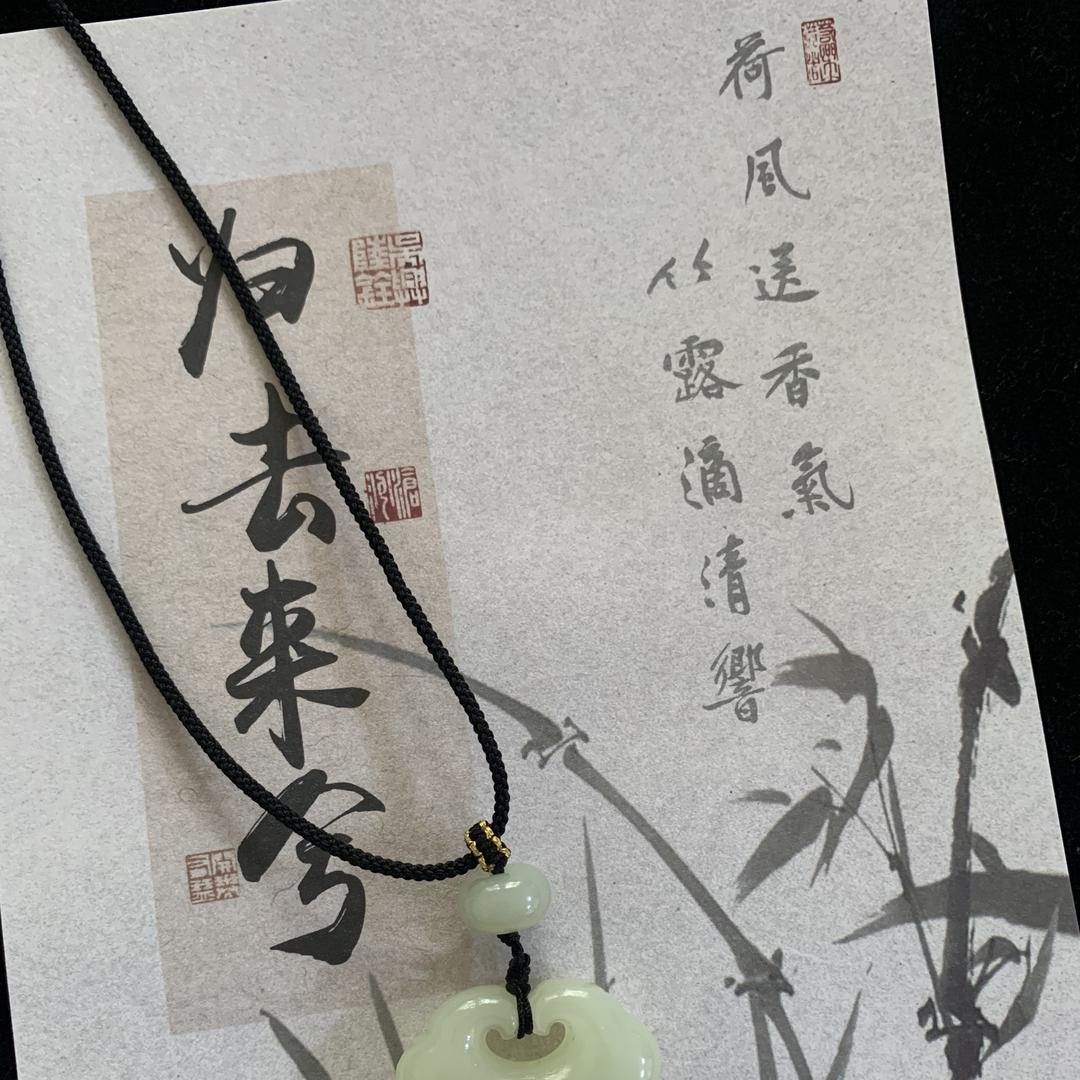 荷風送香氣
竹露滴清響
归去来兮